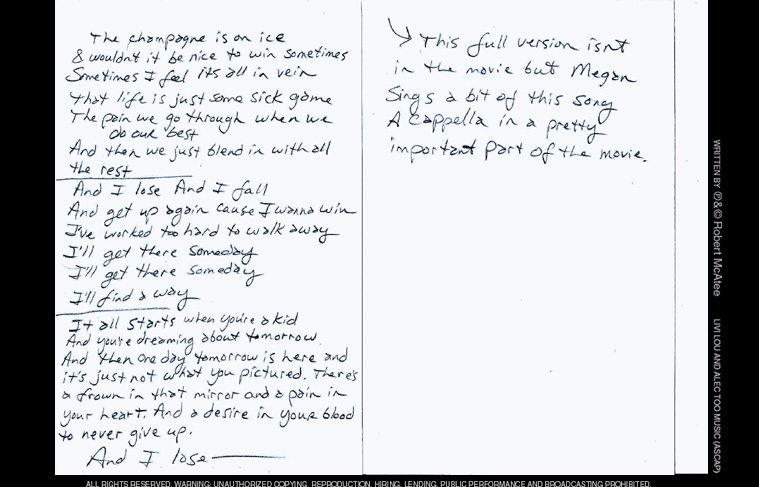 The champagne is on ice
& wouldnt it be nice to win sometimes
Sometimes I feel its all in vein
that life is just some sick game
The pain we go through when we
do our best
And then we just blend in with all
the rest
And I lose And I fall
And get up again cause I wanna win
I've worked too hard to walk away
I'll get there someday
I'll get there someday
I'll find a way
It all starts when you're a kid
And you're dreaming about tomorrow
And then one day tomorrow is here and
it's just not what you pictured. There's
a frown in that mirror and a pain in
your heart. And a desire in your blood
to never give up.
And I lose
This full version isnt
in the movie but Megan
Sings a bit of this song
A Cappella in a pretty
important part of the movie.
WRITTEN BY ℗&© Robert McAtee
LIVI LOU AND ALEC TOO MUSIC (ASCAP)
ALL RIGHTS RESERVED. WARNING: UNAUTHORIZED COPYING, REPRODUCTION, HIRING, LENDING, PUBLIC PERFORMANCE AND BROADCASTING PROHIBITED.